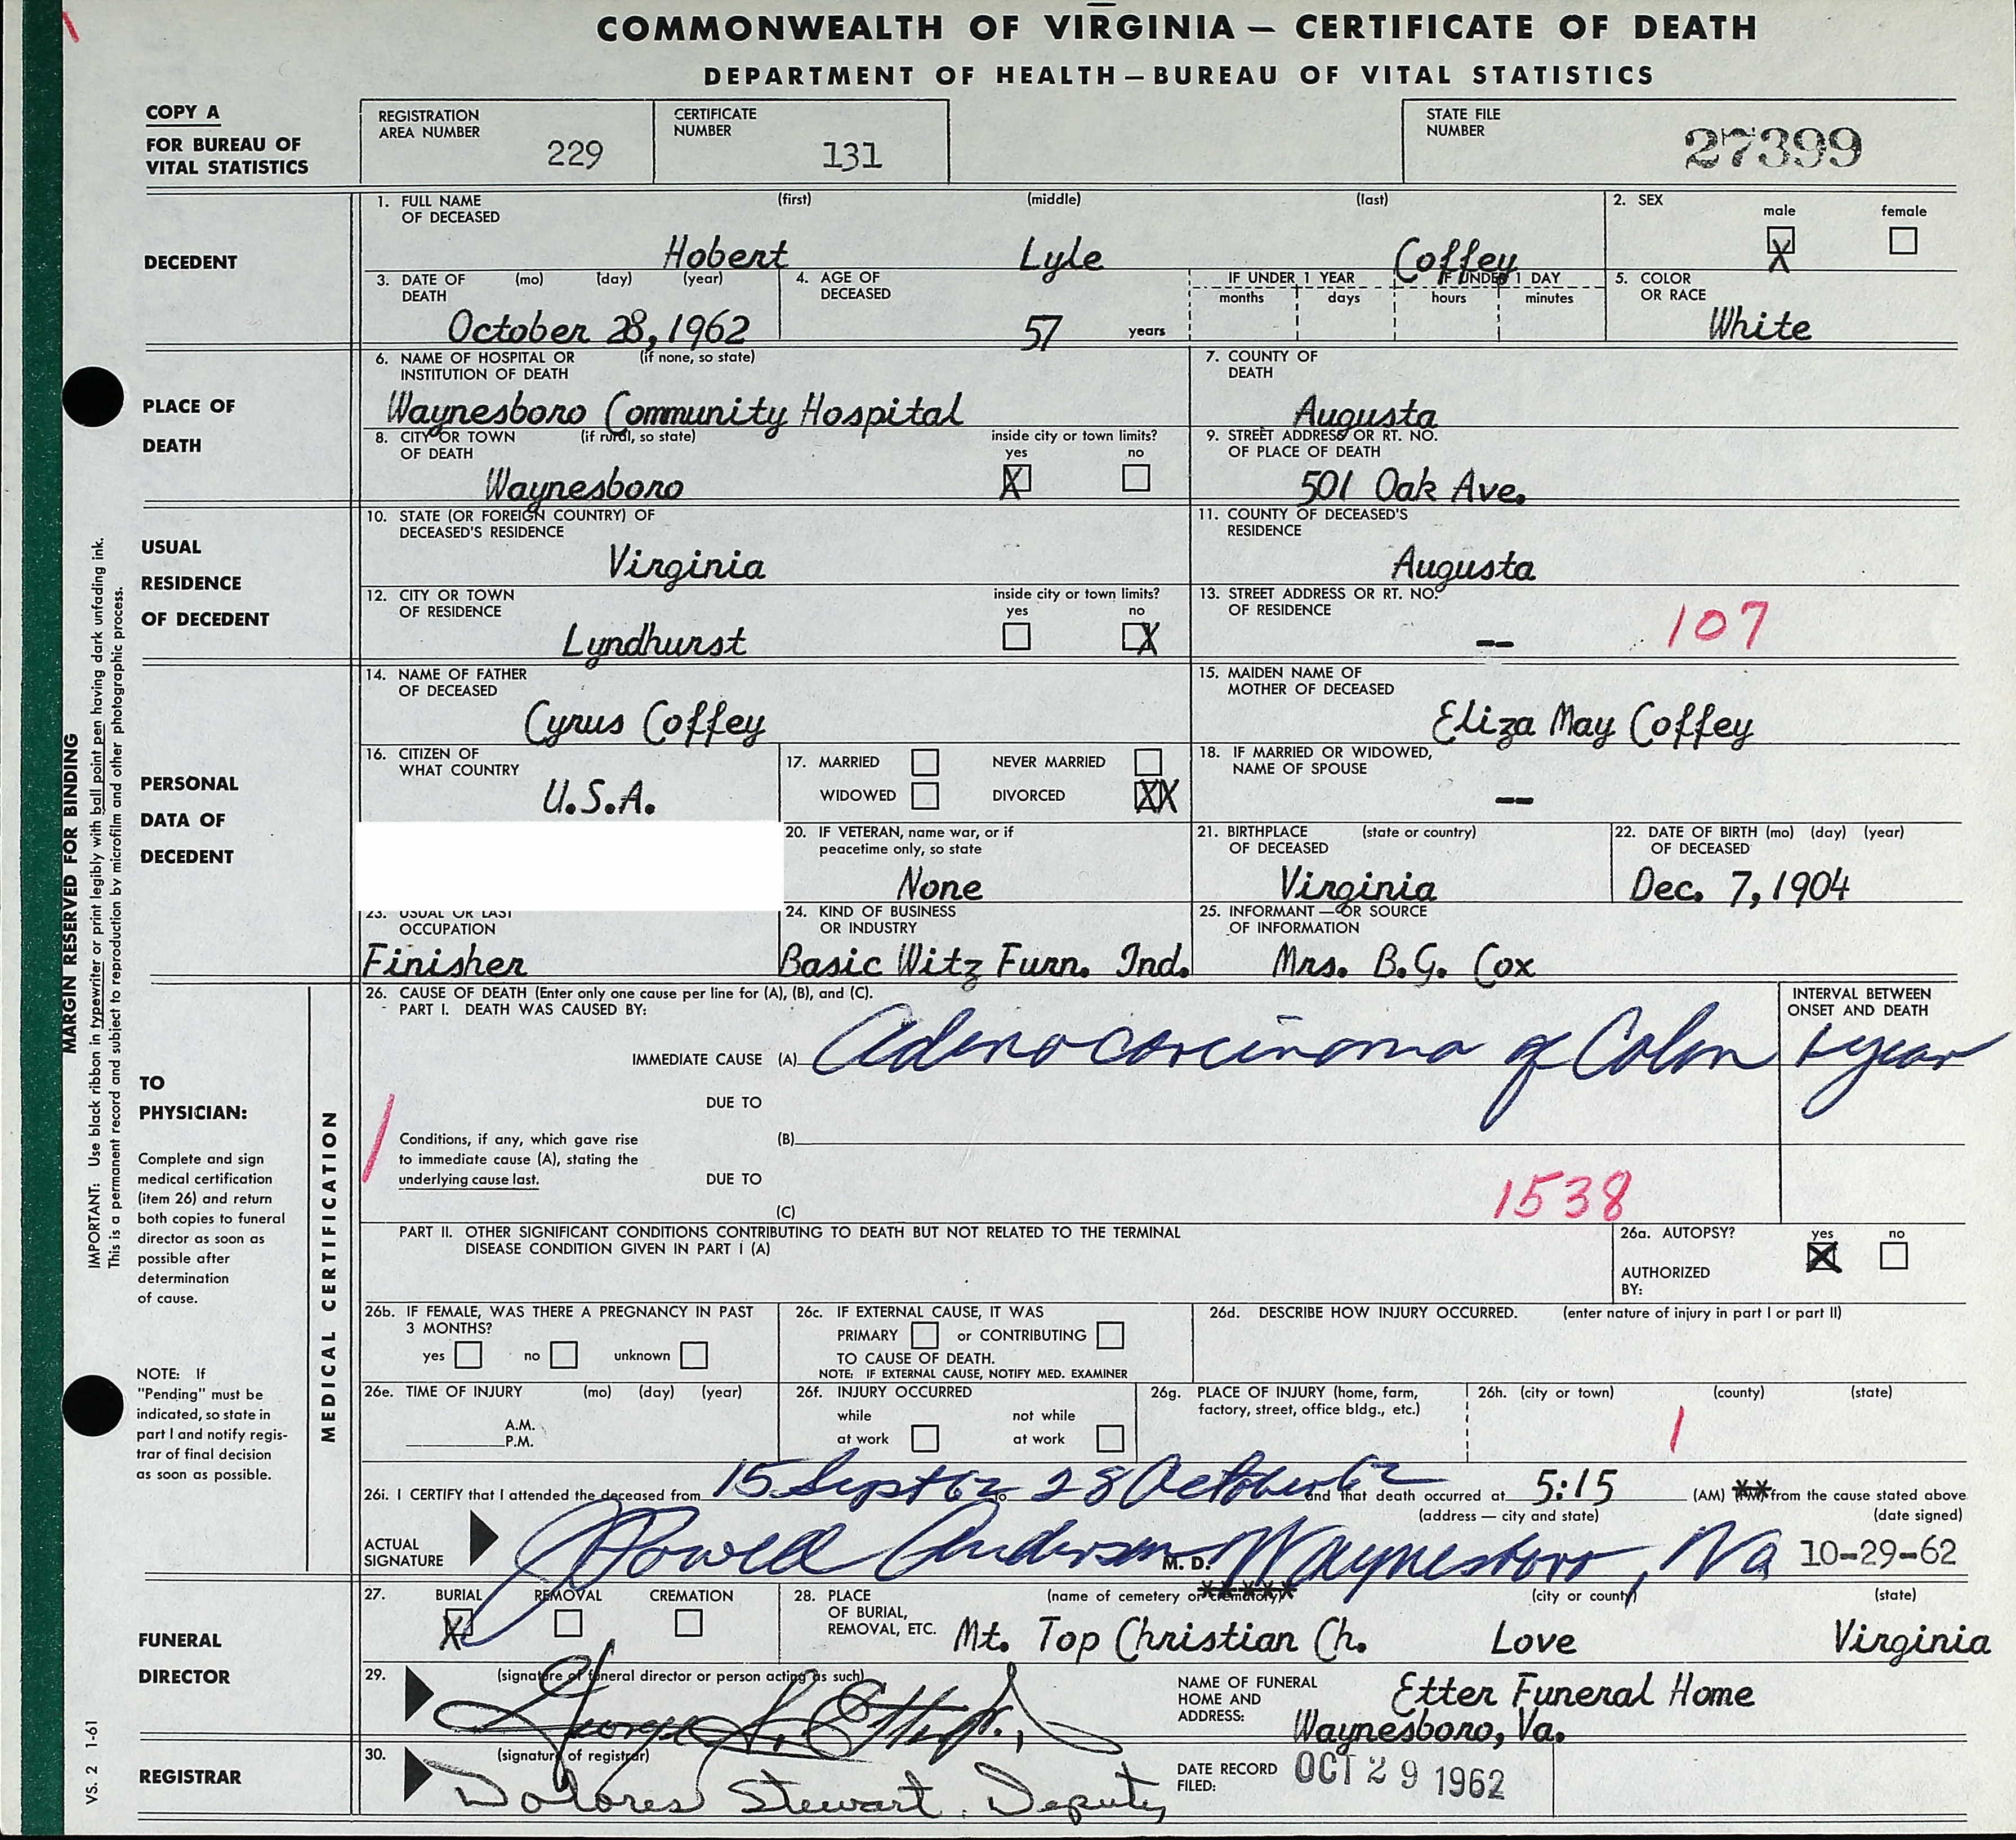 COMMONWEALTH OF VIRGINIA — CERTIFICATE OF DEATH
DEPARTMENT OF HEALTH — BUREAU OF VITAL STATISTICS
COPY A
FOR BUREAU OF
VITAL STATISTICS
REGISTRATION
AREA NUMBER
229
CERTIFICATE
NUMBER
131
STATE FILE
NUMBER
27399
DECEDENT
1. FULL NAME
OF DECEASED
(first) (middle) (last)
Hobert Lyle Coffey
2. SEX
male female
X
3. DATE OF
DEATH
(mo) (day) (year)
October 28, 1962
4. AGE OF
DECEASED
57 years
IF UNDER 1 YEAR
months days
IF UNDER 1 DAY
hours minutes
5. COLOR
OR RACE
White
PLACE OF
DEATH
6. NAME OF HOSPITAL OR (if none, so state)
INSTITUTION OF DEATH
Waynesboro Community Hospital
7. COUNTY OF
DEATH
Augusta
8. CITY OR TOWN (if rural, so state)
OF DEATH
Waynesboro
inside city or town limits?
yes no
X
9. STREET ADDRESS OR RT. NO.
OF PLACE OF DEATH
501 Oak Ave.
USUAL
RESIDENCE
OF DECEDENT
10. STATE (OR FOREIGN COUNTRY) OF
DECEASED'S RESIDENCE
Virginia
11. COUNTY OF DECEASED'S
RESIDENCE
Augusta
12. CITY OR TOWN
OF RESIDENCE
Lyndhurst
inside city or town limits?
yes no
X
13. STREET ADDRESS OR RT. NO.
OF RESIDENCE
--
107
PERSONAL
DATA OF
DECEDENT
14. NAME OF FATHER
OF DECEASED
Cyrus Coffey
15. MAIDEN NAME OF
MOTHER OF DECEASED
Eliza May Coffey
16. CITIZEN OF
WHAT COUNTRY
U.S.A.
17. MARRIED NEVER MARRIED
WIDOWED DIVORCED XX
18. IF MARRIED OR WIDOWED,
NAME OF SPOUSE
--
20. IF VETERAN, name war, or if
peacetime only, so state
None
21. BIRTHPLACE (state or country)
OF DECEASED
Virginia
22. DATE OF BIRTH (mo) (day) (year)
OF DECEASED
Dec. 7, 1904
23. USUAL OR LAST
OCCUPATION
Finisher
24. KIND OF BUSINESS
OR INDUSTRY
Basic Witz Furn. Ind.
25. INFORMANT — OR SOURCE
OF INFORMATION
Mrs. B.G. Cox
MARGIN RESERVED FOR BINDING
IMPORTANT: Use black ribbon in typewriter or print legibly with ball point pen having dark unfading ink.
This is a permanent record and subject to reproduction by microfilm and other photographic process.
TO
PHYSICIAN:
Complete and sign
medical certification
(item 26) and return
both copies to funeral
director as soon as
possible after
determination
of cause.
NOTE: If
"Pending" must be
indicated, so state in
part I and notify regis-
trar of final decision
as soon as possible.
MEDICAL CERTIFICATION
26. CAUSE OF DEATH (Enter only one cause per line for (A), (B), and (C).
PART I. DEATH WAS CAUSED BY:
INTERVAL BETWEEN
ONSET AND DEATH
IMMEDIATE CAUSE (A) Adenocarcinoma of Colon year
DUE TO
Conditions, if any, which gave rise
to immediate cause (A), stating the
underlying cause last.
(B)
DUE TO
(C)
1538
PART II. OTHER SIGNIFICANT CONDITIONS CONTRIBUTING TO DEATH BUT NOT RELATED TO THE TERMINAL
DISEASE CONDITION GIVEN IN PART I (A)
26a. AUTOPSY? yes no
X
AUTHORIZED
BY:
26b. IF FEMALE, WAS THERE A PREGNANCY IN PAST
3 MONTHS?
yes no unknown
26c. IF EXTERNAL CAUSE, IT WAS
PRIMARY or CONTRIBUTING
TO CAUSE OF DEATH.
NOTE: IF EXTERNAL CAUSE, NOTIFY MED. EXAMINER
26d. DESCRIBE HOW INJURY OCCURRED. (enter nature of injury in part I or part II)
26e. TIME OF INJURY (mo) (day) (year)
A.M.
P.M.
26f. INJURY OCCURRED
while not while
at work at work
26g. PLACE OF INJURY (home, farm,
factory, street, office bldg., etc.)
26h. (city or town) (county) (state)
1
26i. I CERTIFY that I attended the deceased from 15 Sept 62 to 28 October 62 and that death occurred at 5:15 (AM) (PM) from the cause stated above
(address — city and state) (date signed)
ACTUAL
SIGNATURE
Powell Anderson M. D. Waynesboro, Va 10-29-62
FUNERAL
DIRECTOR
27. BURIAL REMOVAL CREMATION
X
28. PLACE
OF BURIAL,
REMOVAL, ETC.
(name of cemetery or crematory) (city or county) (state)
Mt. Top Christian Ch. Love Virginia
29. (signature of funeral director or person acting as such)
George Etter Jr.
NAME OF FUNERAL
HOME AND
ADDRESS:
Etter Funeral Home
Waynesboro, Va.
REGISTRAR
30. (signature of registrar)
Dolores Stewart, Deputy
DATE RECORD
FILED:
OCT 29 1962
VS. 2 1-61